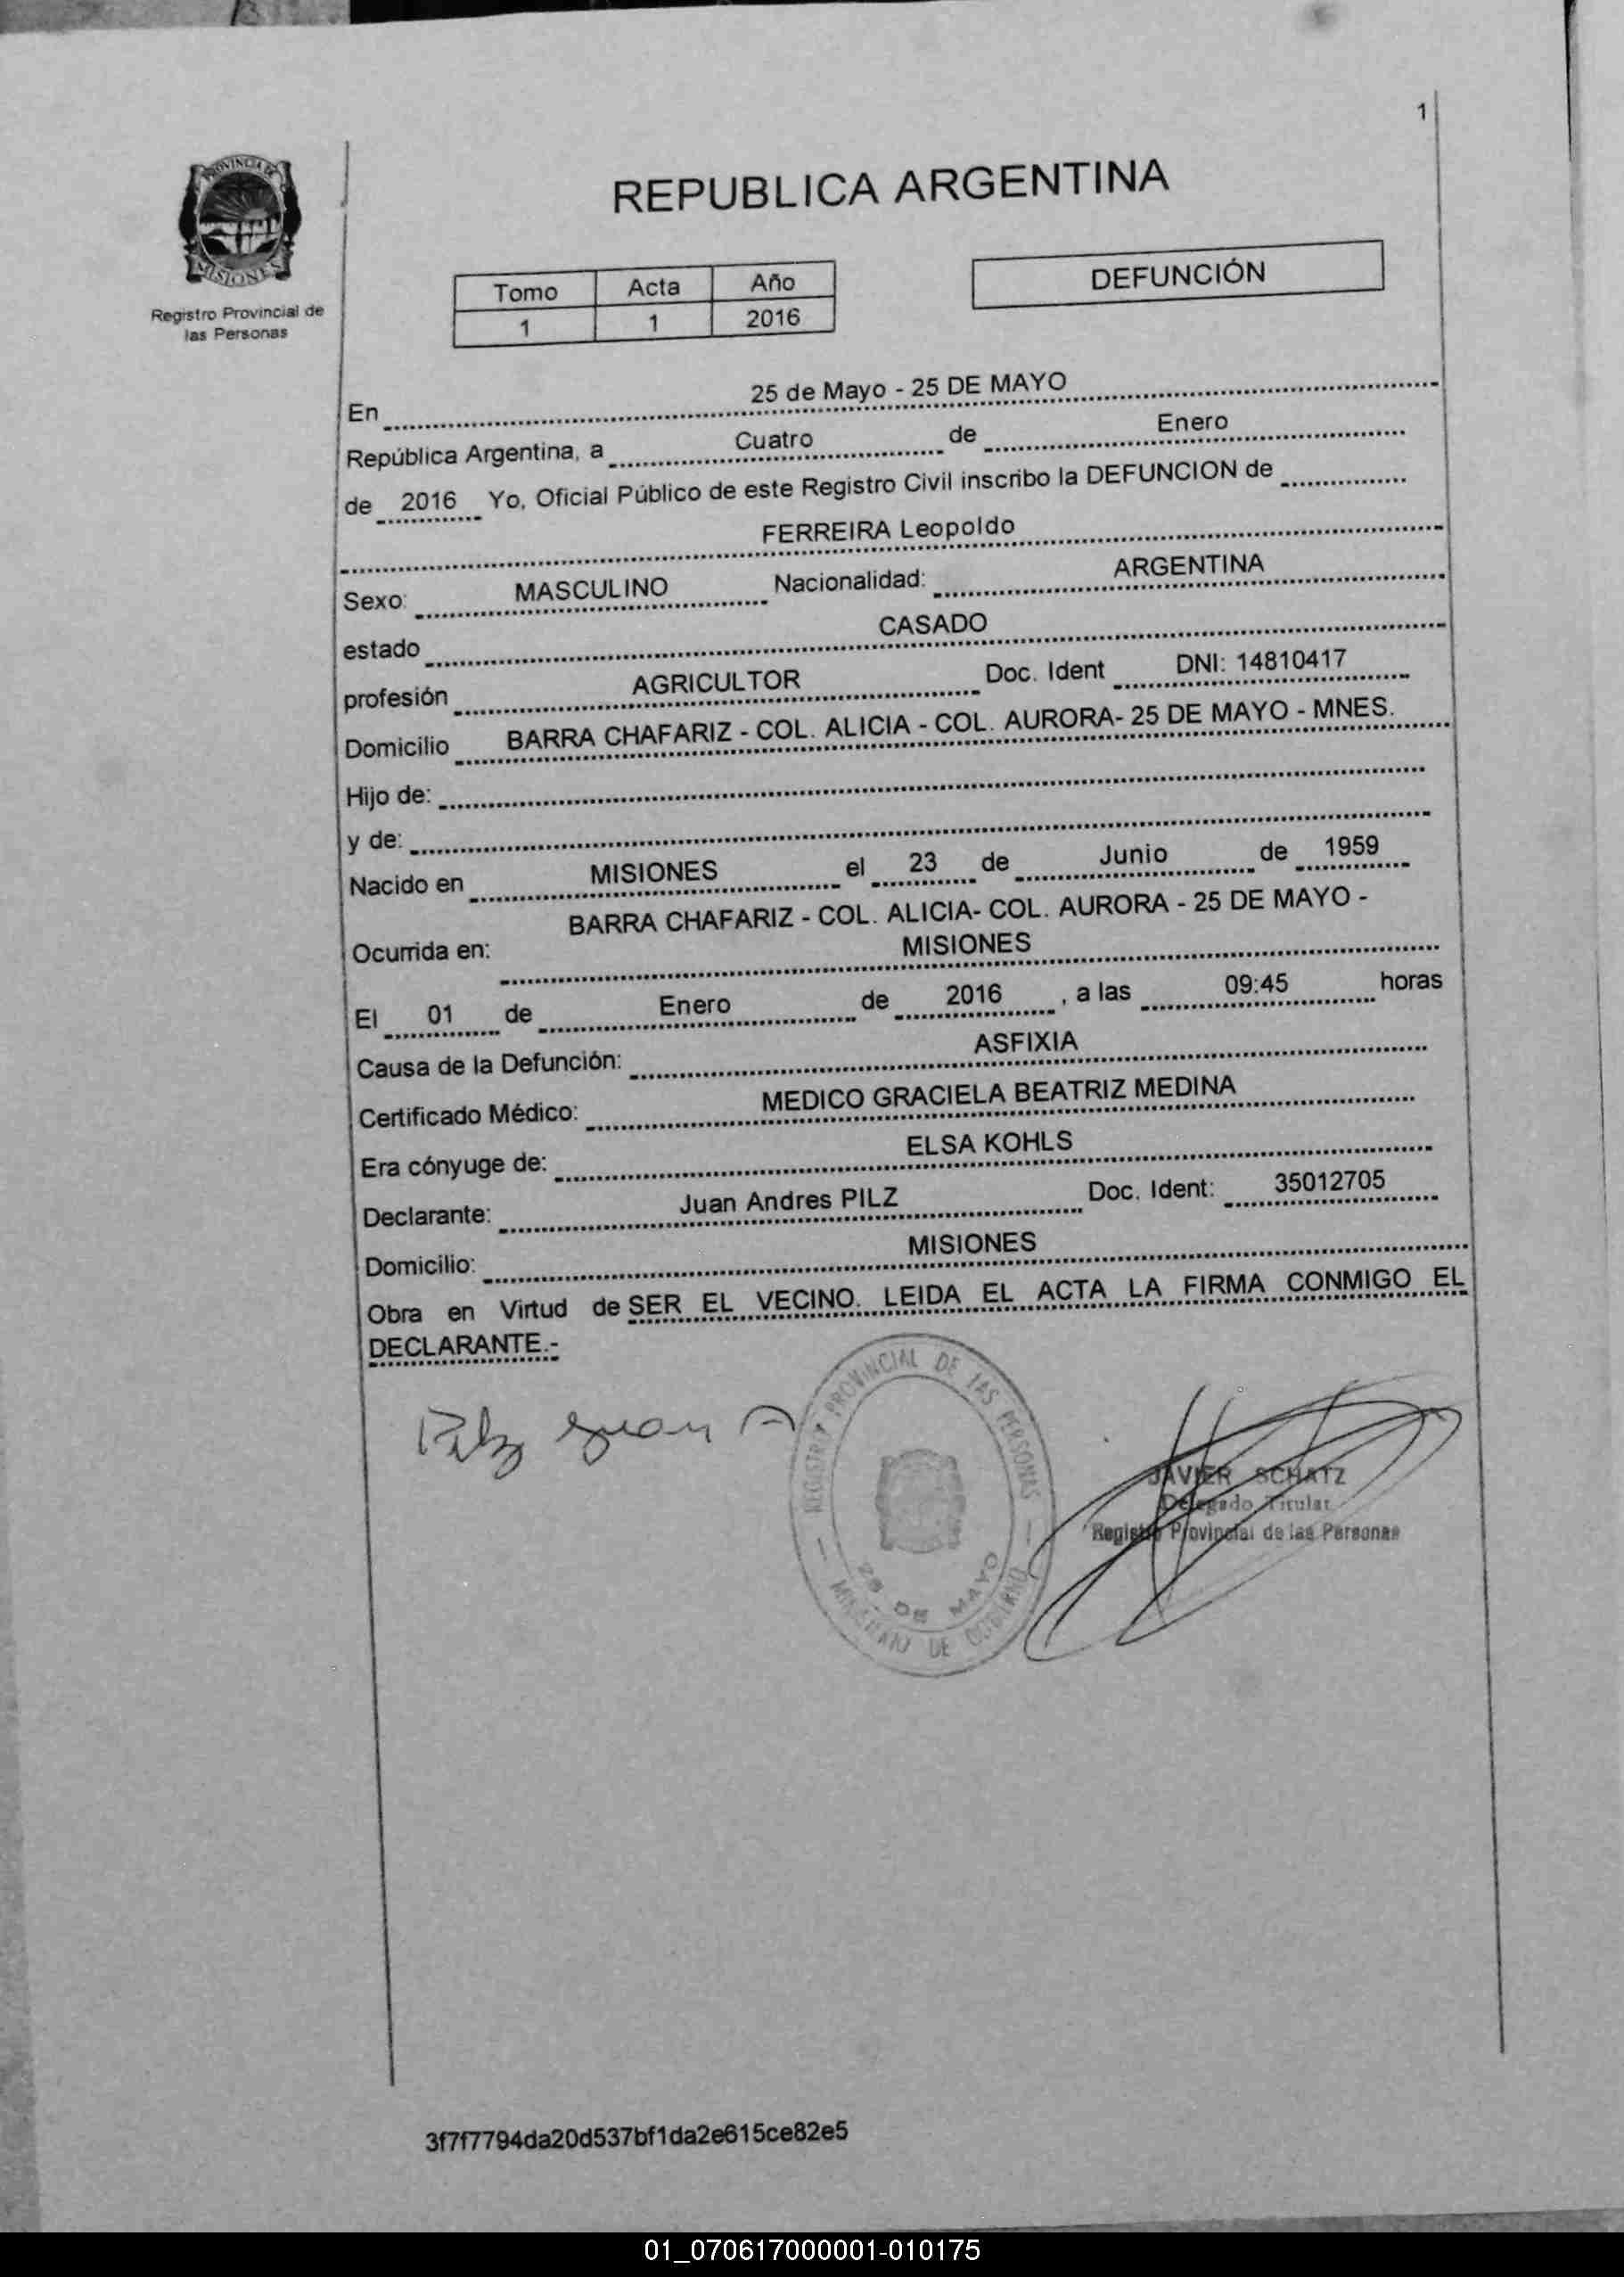 1
PROVINCIA DE
MISIONES
Registro Provincial de
las Personas
REPUBLICA ARGENTINA
Tomo Acta Año
1 1 2016
DEFUNCIÓN
En 25 de Mayo - 25 DE MAYO
República Argentina, a Cuatro de Enero
de 2016 Yo, Oficial Público de este Registro Civil inscribo la DEFUNCION de
FERREIRA Leopoldo
Sexo: MASCULINO Nacionalidad: ARGENTINA
estado CASADO
profesión AGRICULTOR Doc. Ident DNI: 14810417
Domicilio BARRA CHAFARIZ - COL. ALICIA - COL. AURORA- 25 DE MAYO - MNES.
Hijo de:
y de:
Nacido en MISIONES el 23 de Junio de 1959
BARRA CHAFARIZ - COL. ALICIA- COL. AURORA - 25 DE MAYO -
Ocurrida en: MISIONES
El 01 de Enero de 2016 , a las 09:45 horas
Causa de la Defunción: ASFIXIA
Certificado Médico: MEDICO GRACIELA BEATRIZ MEDINA
Era cónyuge de: ELSA KOHLS
Declarante: Juan Andres PILZ Doc. Ident: 35012705
Domicilio: MISIONES
Obra en Virtud de SER EL VECINO. LEIDA EL ACTA LA FIRMA CONMIGO EL
DECLARANTE.-
Pilz Juan A
REGISTRO PROVINCIAL DE LAS PERSONAS
25 DE MAYO
MINISTERIO DE GOBIERNO
JAVIER SCHATZ
Delegado Titular
Registro Provincial de las Personas
3f7f7794da20d537bf1da2e615ce82e5
01_070617000001-010175